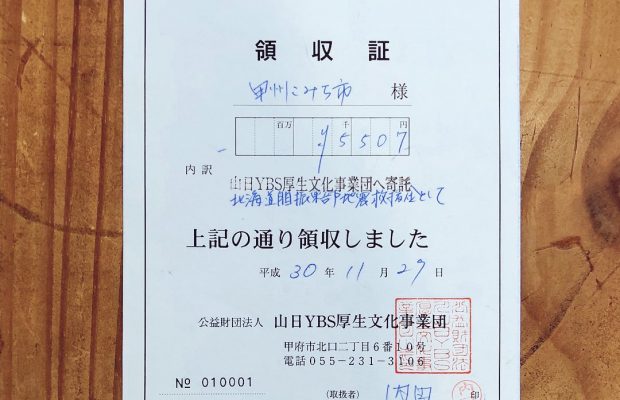 領収証
甲州こみち市 様
百万 千 円
¥5507
内訳
山日YBS厚生文化事業団へ寄託
北海道胆振東部地震救援金として
上記の通り領収しました
平成 30 年 11 月 29 日
公益財団法人 山日YBS厚生文化事業団
甲府市北口二丁目6番10号
電話 055-231-3106
№ 010001
(取扱者) 内田 内 印